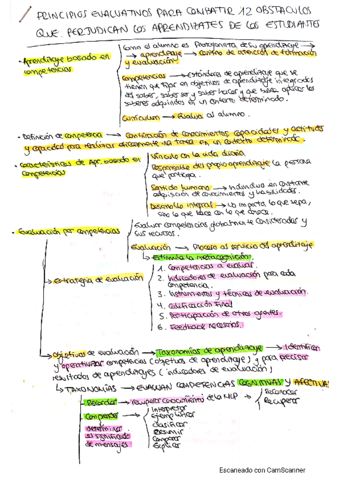 PRINCIPIOS EVALUATIVOS PARA COMBATIR 12 OBSTACULOS
QUE PERJUDICAN LOS APRENDIZAJES DE LOS ESTUDIANTES
Como el alumno es protagonista de su aprendizaje
• Aprendizaje basado en competencias
→ aprendizaje → Centro de atención de formación
y evaluación
Competencias → Estándares de aprendizaje que se
tienen que fijar en objetivos de aprendizaje integrados
del saber, saber ser y saber hacer y que sabe aplicar los
saberes adquiridos en un contexto determinado.
Currículum → Evalua al alumno.
• Definición de competencia → Combinación de conocimientos, capacidades y actitudes
y capacidad para realizar eficazmente una tarea en un contexto determinado.
• Características de Apr. basado en
competencias
Vínculo con la vida diaria
Responsable del propio aprendizaje la persona
que participa.
Sentido humano → Individuo en constante
adquisición de conocimientos y habilidades.
Desarrollo integral → No importa lo que sepa,
sino lo que hace con lo que conoce.
• Evaluación por competencias
Evaluar competencias globalmente consideradas y
sus recursos.
Evaluación → Proceso al servicio del aprendizaje
→ Estimula la metacognición.
→ Estrategia de evaluación
1. Competencias a evaluar
2. Indicadores de evaluación para cada
competencia.
3. Instrumentos y técnicas de evaluación.
4. Calificación Final
5. Participación de otros agentes.
6. Feedback necesarios.
→ Objetivos de evaluación → Taxonomías de aprendizaje → Identificar
y operativizar competencias (objetivos de aprendizaje) y para precisar
resultados de aprendizajes (indicadores de evaluación)
↳ TAXONOMÍAS → EVALUAN COMPETENCIAS COGNITIVAS Y AFECTIVAS
Recordar → recuperar conocimiento de la MLP
→ Reconocer
→ Recuperar
Comprender
→ determinar
el significado
de mensajes
Interpretar
ejemplificar
clasificar
Resumir
Comparar
Explicar
Escaneado con CamScanner